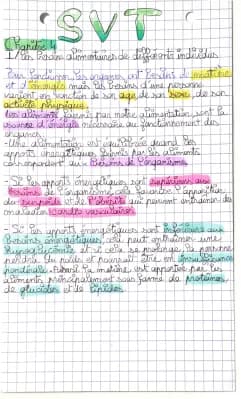 SVT
Chapitre 4
1/ Les besoins alimentaires de différents individus
Pour fonctionner les organes ont besoins de matière
et d'énergie mais les besoins d'une personne
varient en fonction de son age, de son sexe, de son
activité physique.
Les aliments fournis par notre alimentation sont la
source d'énergie nécessaire au fonctionnement des
organes.
- Une alimentation est équilibrée quand les
apports énergétiques fournis par les aliments
correspondent aux besoins de l'organisme.
- Si les apports énergétiques sont supérieurs aux
besoins de l'organisme, cela favorise l'apparition
du surpoids et de l'obésité qui peuvent entrainer des
maladies cardio vasculaires.
- Si les apports énergétiques sont inférieurs aux
besoins énergétiques, cela peut entrainer une
hypoglycémie et si cela se prolonge la personne
perdra du poids et pourrait être en insuffisance
pondérale. la matière est apportée par les
aliments principalement sous forme de protéines,
de glucides et de lipides.